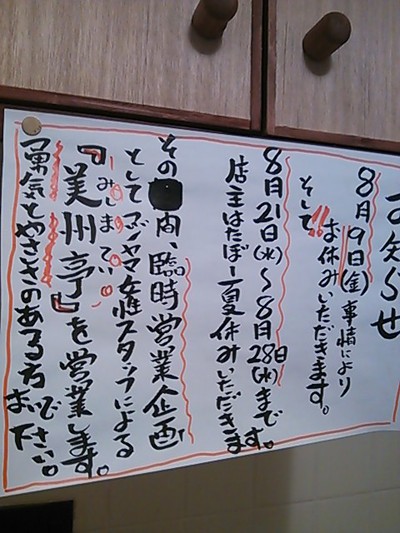 お知らせ
8月9日(金)事情により
お休みいただきます。
そして!!
8月21日(水)〜8月28日(水)まで
店主はたぼー夏休みいただきます。
その間、臨時営業企画
としてマジヤマ女性スタッフによる
『美州亭』を営業します。
みしまてい
勇気とやさきのある方おいで下さい。